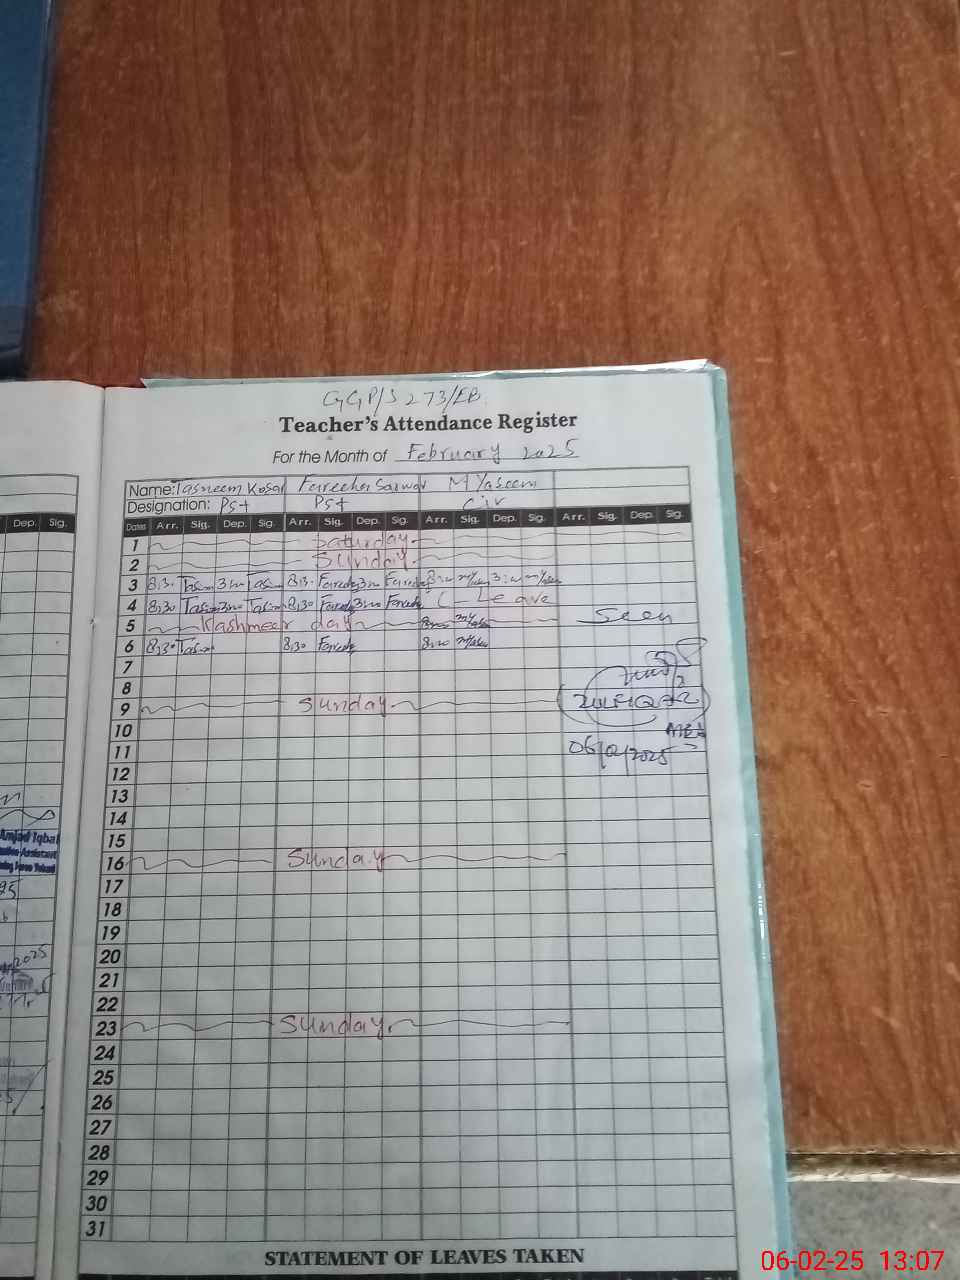 GGP/S 273/EB
Teacher's Attendance Register
For the Month of February 2025
Name: Tasneem Kosar Fareeha Sarwar M Yaseem
Designation: Pst Pst Civ
Dep. Sig. Dates Arr. Sig. Dep. Sig. Arr. Sig. Dep. Sig. Arr. Sig. Dep. Sig. Arr. Sig. Dep. Sig.
1 Saturday
2 Sunday
3 8,30 3:00 8,30 3:00
4 8,30 3:00 8,30 3:00 Leave
5 Kashmeer day Seen
6 8,30 8,30
7
8
9 Sunday ZULFIQAR
10
11 06/02/2025
12
13
14
15
Amjad Iqbal
Assistant
16 Sunday
17
18
19
20
2025
21
22
23 Sunday
24
25
26
27
28
29
30
31
STATEMENT OF LEAVES TAKEN
06-02-25 13:07